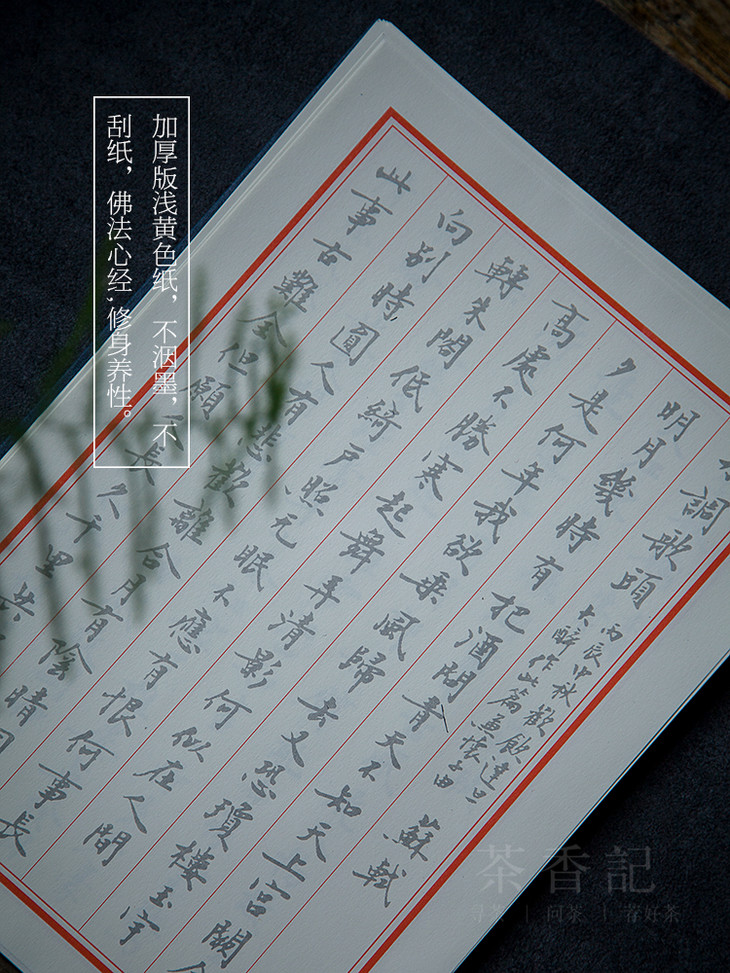 加厚版浅黄色纸，不洇墨，不
刮纸，佛法心经,修身养性。
調歌頭
丙辰中秋歡飲達旦
大醉作此篇兼懷子由
蘇軾
明月幾時有把酒問青天不知天上宮闕今
夕是何年我欲乘風歸去又恐瓊樓玉宇
高處不勝寒起舞弄清影何似在人間
轉朱閣低綺戶照无眠不應有恨何事長
向別時圓人有悲歡離合月有陰晴
此事古難全但願人長久千里共
茶香記
寻茶丨问茶丨荐好茶